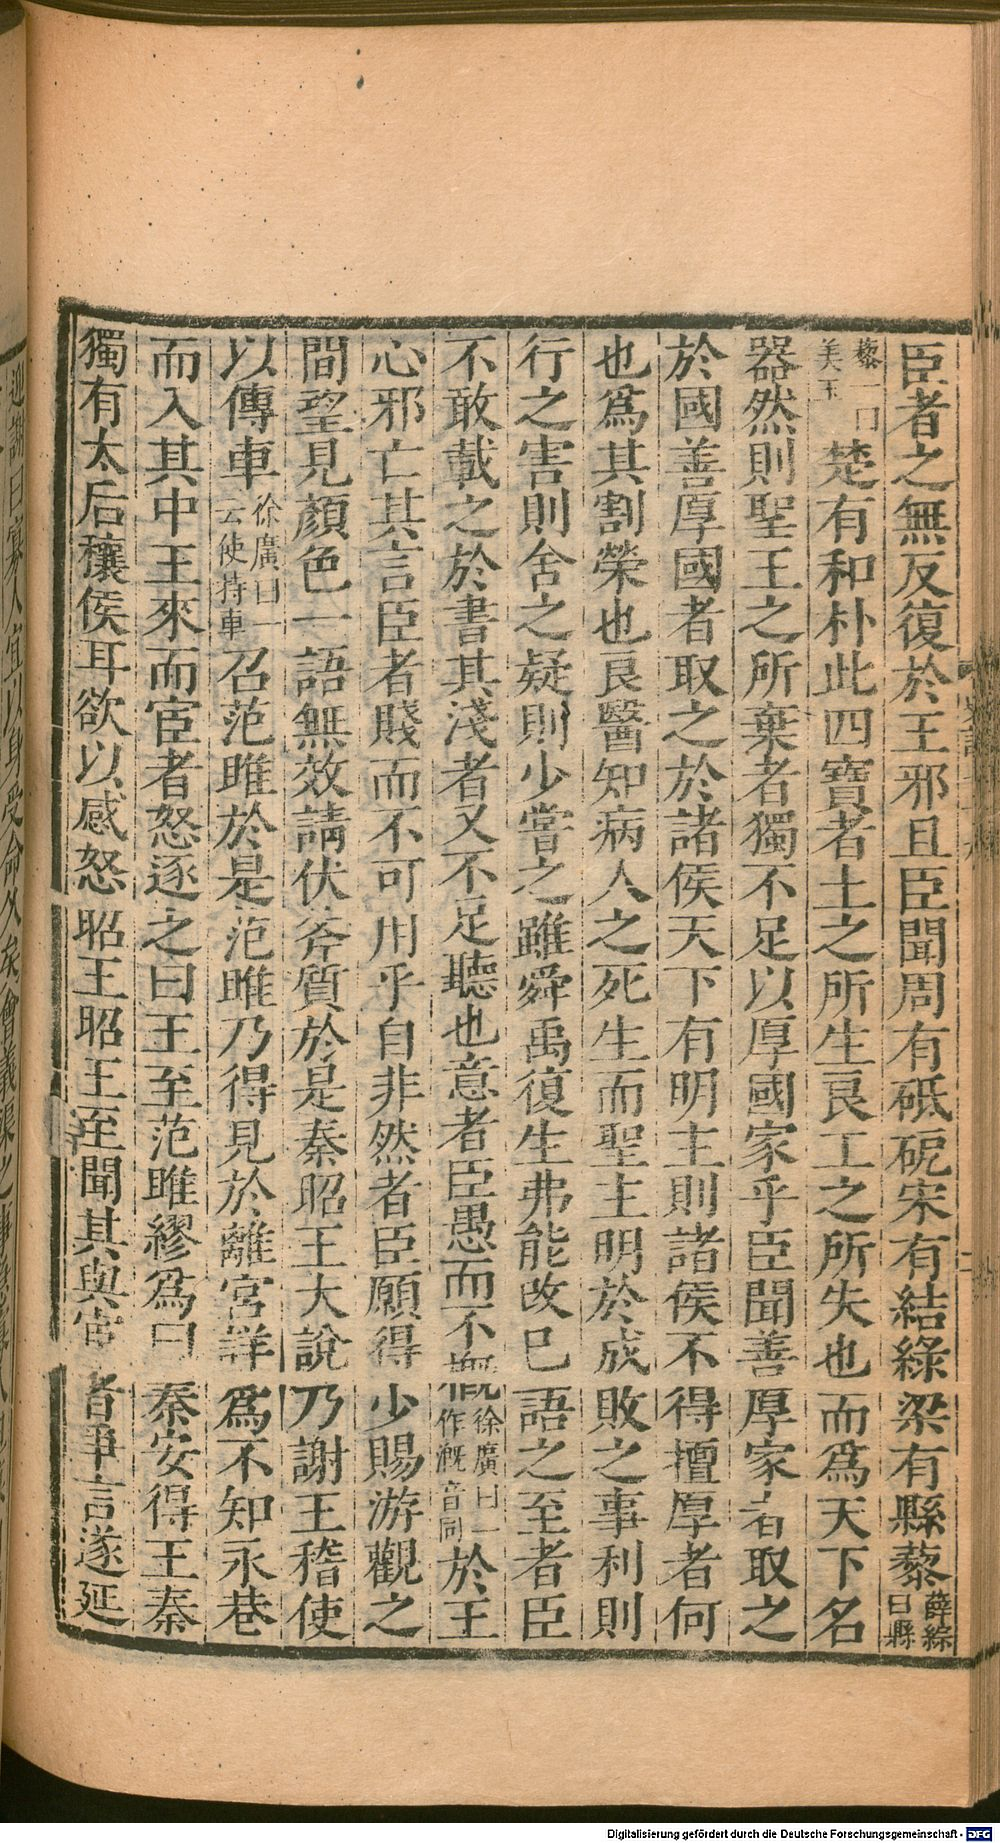 臣者之無反復於王邪且臣聞周有砥砨宋有結綠梁有縣藜薛綜曰縣
藜一曰美玉楚有和朴此四寶者土之所生良工之所失也而爲天下名
器然則聖王之所棄者獨不足以厚國家乎臣聞善厚家者取之
於國善厚國者取之於諸侯天下有明主則諸侯不得擅厚者何
也爲其割榮也良醫知病人之死生而聖主明於成敗之事利則
行之害則舍之疑則少嘗之雖舜禹復生弗能改已語之至者臣
不敢載之於書其淺者又不足聽也意者臣愚而不概徐廣曰一作溉音同於王
心邪亡其言臣者賤而不可用乎自非然者臣願得少賜游觀之
間望見顏色一語無效請伏斧質於是秦昭王大說乃謝王稽使
以傳車徐廣曰一云使持車召范雎於是范雎乃得見於離宮詳爲不知永巷
而入其中王來而宦者怒逐之曰王至范雎繆爲曰秦安得王秦
獨有太后穰侯耳欲以感怒昭王昭王至聞其與宦者爭言遂延
迎謝曰寡人宜以身受命久矣會義渠之事
Digitalisierung gefördert durch die Deutsche Forschungsgemeinschaft - DFG